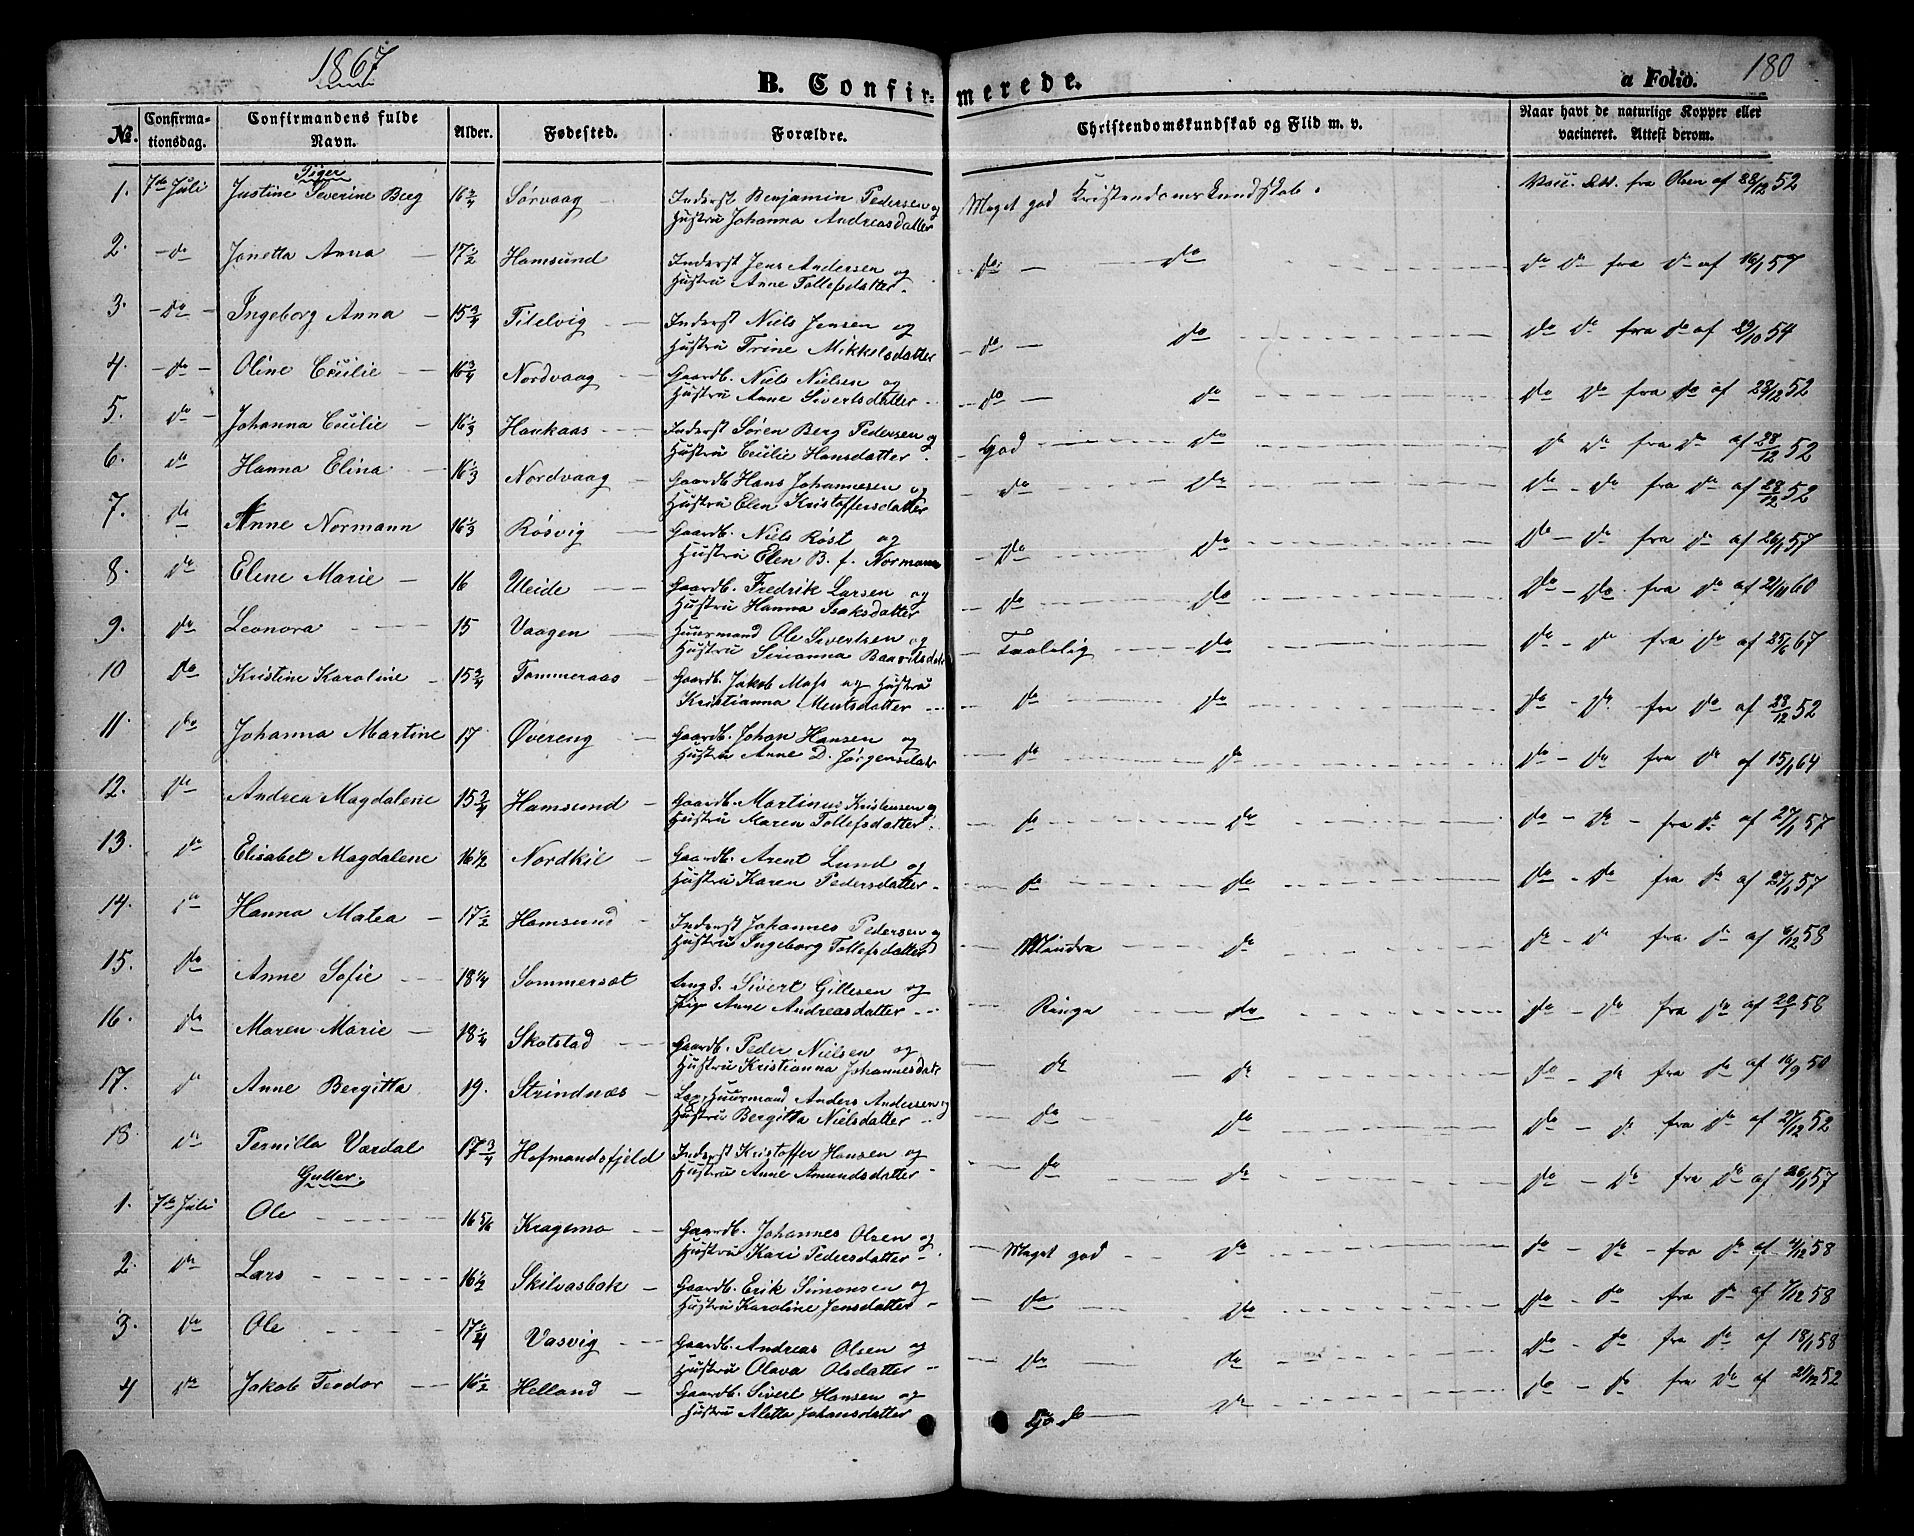 1867
180
B. Confirmerede.
a Folio.
No. Confirmationsdag. Confirmandens fulde Navn. Alder. Fødested. Forældre. Christendomskundskab og Flid m. v. Naar havt de naturlige Kopper eller vacineret. Attest derom.
Piger
1. 7de Juli Justine Severine Berg 16 3/4 Sørvaag Inderst Benjamin Pedersen og Meget god Kristendomskundskab. Vacc. Att. fra Olsen af 28/12 52
Hustru Johanna Andreasdatter
2. do Janetta Anna 17 1/2 Hamsund Inderst Jens Andersen og do do do do fra do af 16/1 57
Hustru Anne Tollefsdatter.
3. do Ingeborg Anna 15 3/4 Tilelvig Inderst Niels Jensen og do do do do fra do af 29/10 54
Hustru Trine Mikkelsdatter
4. do Oline Cecilie 16 3/4 Nordvaag Gaardb. Niels Nielsen og do do do do fra do af 28/12 52
Hustru Anne Sivertsdatter
5. do Johanna Cecilie 16 1/3 Haukaas Inderst Søren Berg Pedersen og God do do do fra do af 28/12 52
Hustru Cecilie Hansdatter.
6. do Hanna Elina 16 1/3 Nordvaag Gaardb. Hans Johannesen og do do do do fra do af 28/12 52
Hustru Elen Kristoffersdatter
7. do Anne Normann 16 1/3 Røsvig Gaardb. Niels Røst og do do do do fra do af 26/1 57
Hustru Elen B. f. Normann
8. do Elene Marie 16 Uleide Gaardb. Fredrik Larsen og do do do do fra do af 21/11 60
Hustru Hanna Isaksdatter
9. do Leonora 15 Vaagen Huusmand Ole Sivertsen og Taalelig do do do fra do af 25/6 67
Hustru Sirianna
10 do Kristine Karoline 15 3/4 Tømmeraas Gaardb. Jakob Moss og Hustru do do do do fra do af 28/12 52
Kristianna Mentsdatter
11. do Johanna Martine 17 Øvereng Gaardb. Johan Hansen og do do do do fra do af 15/1 64
Hustru Anne D. Jørgensdatr
12. do Andrea Magdalene 15 3/4 Hamsund Gaardb. Martinus Kristensen og do do do do fra do af 27/1 57
Hustru Maren Tollefsdatter.
13. do Elisabet Magdalene 16 1/2 Nordkil Gaardb. Arent Lund og do do do do fra do af 27/1 57
Hustru Karen Pedersdatter
14. do Hanna Matea 17 1/2 Hamsund Inderst Johannes Pedersen og Mindre do do do fra do af 6/12 58
Hustru Ingeborg Tollefsdatter
15. do Anne Sofie 18 1/4 Sommersæt Ung k. Sivert Gillesen og Ringe do do do fra do af 20/1 58
Pige Anne Andreasdatter
16. do Maren Marie 18 1/4 Skotstad Gaardb. Peder Nielsen og do do do do fra do af 16/9 50
Hustru Kristianna Johannesdatr
17. do Anne Bergitta 19. Strindnæs Lap, Huusmand Anders Andersen og do do do do fra do af 27/12 52
Hustru Bergitta Nielsdatter
18 do Pernilla Værdal 17 3/4 Hofmandsfjeld Inderst Kristoffer Hansen og do do do do fra do af 26/1 57
Hustru Anne Amundsdatter
Gutter.
1. 7de Juli Ole 16 5/6 Kragemo Gaardb. Johannes Olsen og Meget god do do do fra do af 4/12 58
Hustru Kari Pedersdatter
2. do Lars 16 1/2 Skilvasbak Gaardb. Erik Simonsen og do do do do fra do af 7/12 58
Hustru Karoline Jensdatter
3. do Ole 17 1/4 Vasvig Gaardb. Andreas Olsen og do do do do fra do af 18/1 58
Hustru Olava Olsdatter
4 do Jakob Teodor 16 1/2 Helland Gaardb. Sivert Hansen og do do do do fra do af 21/12 52
Hustru Aletta Johansdatter